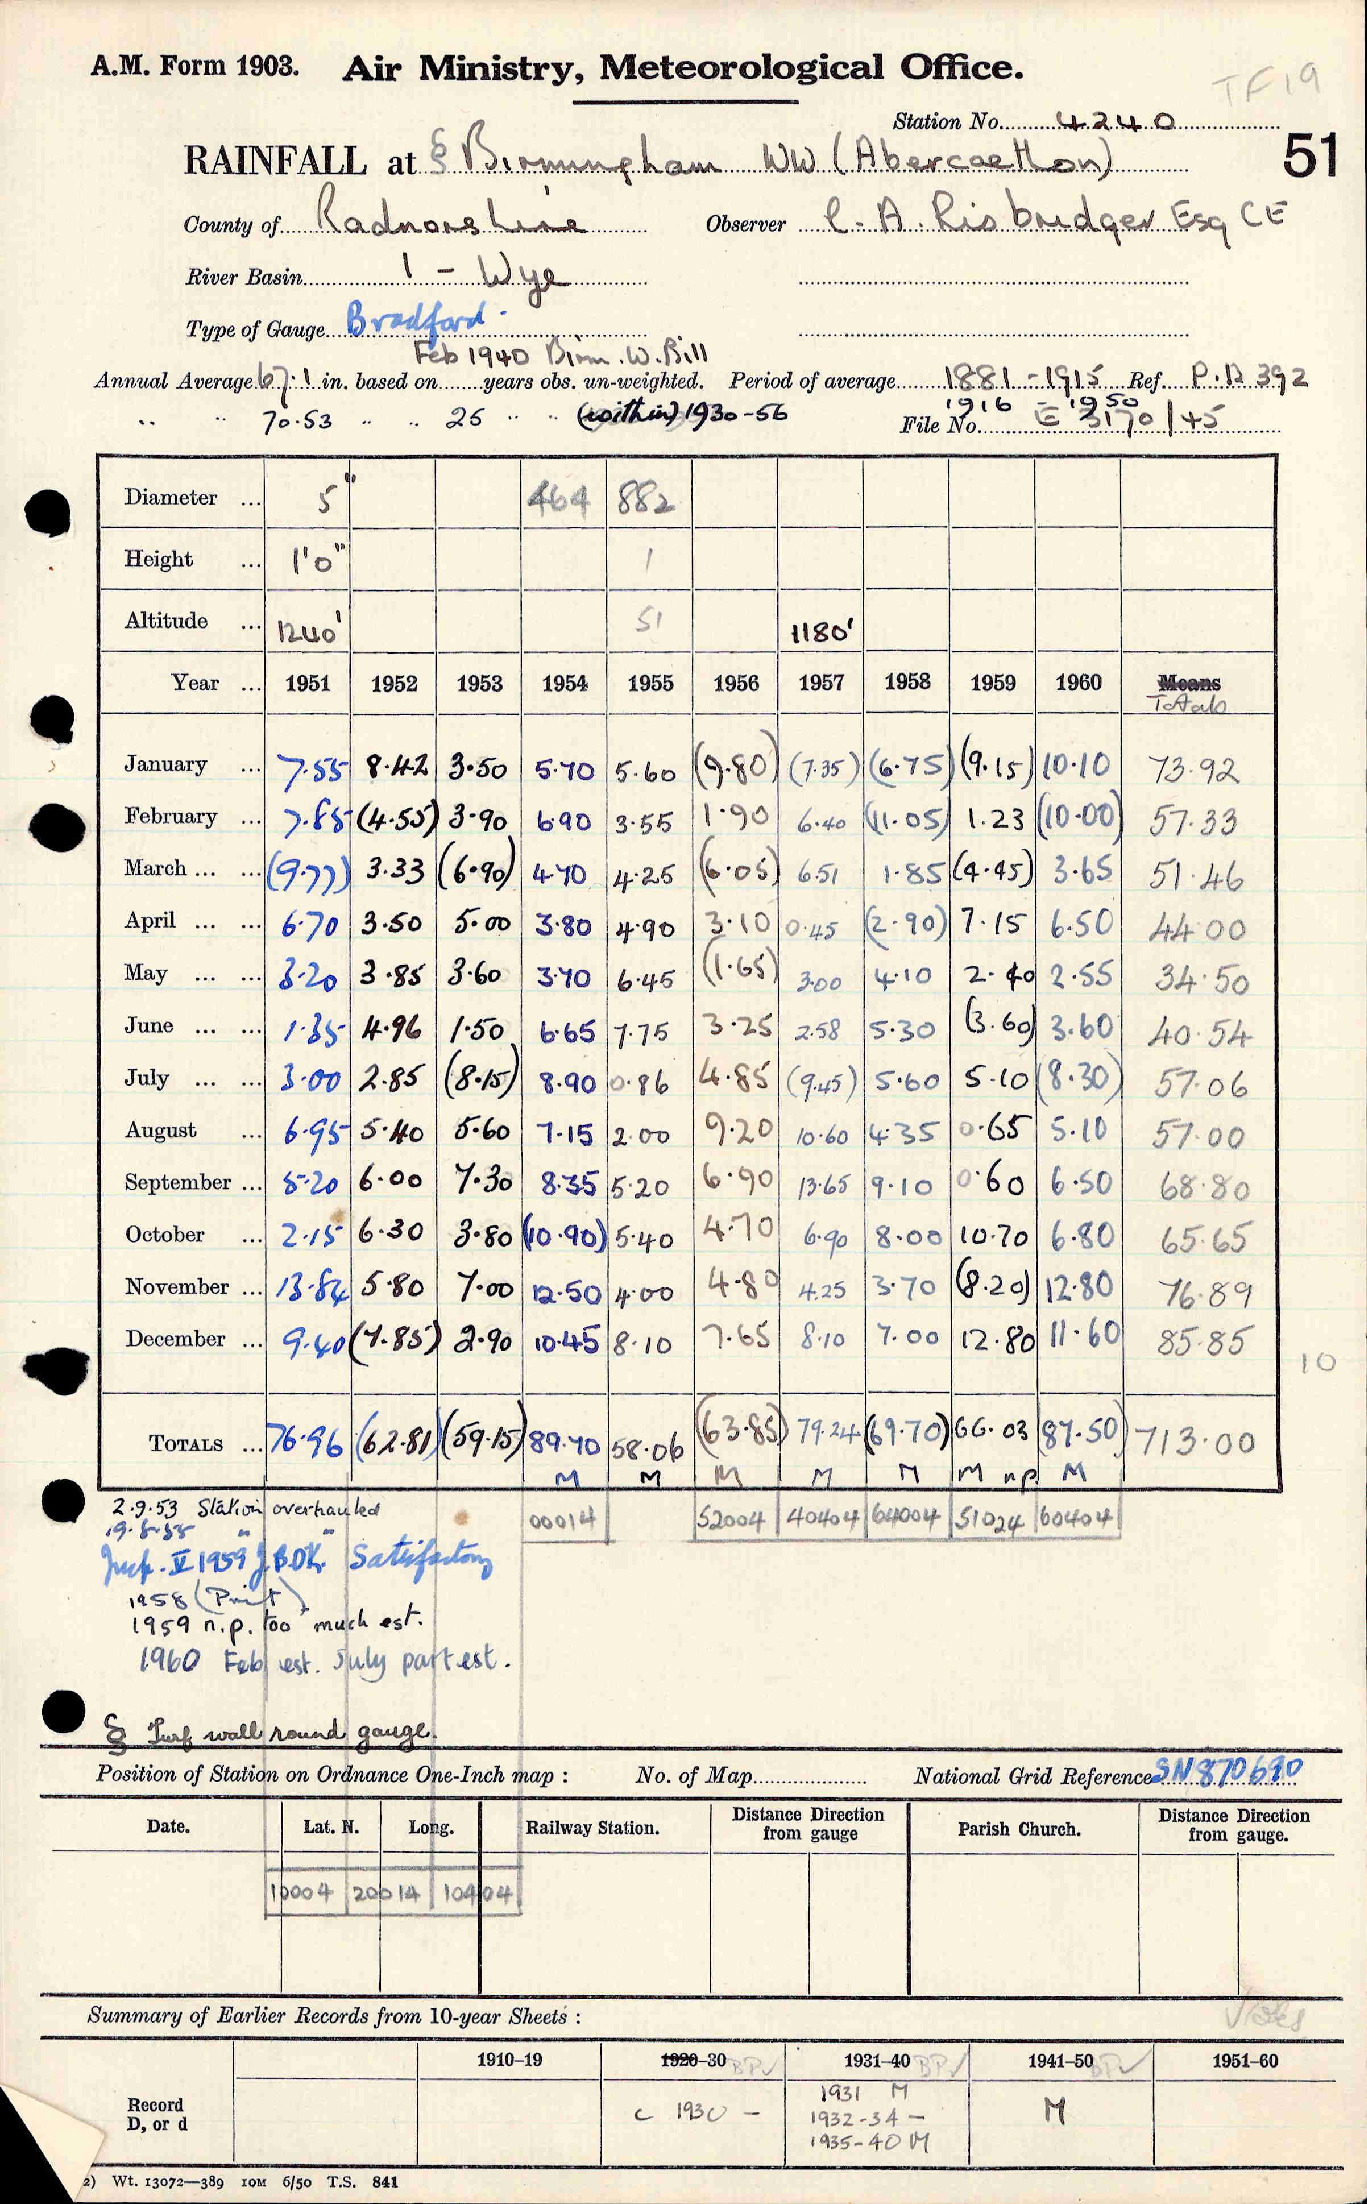 A.M. Form 1903. Air Ministry, Meteorological Office.
TF19
Station No. 4240
RAINFALL at § Birmingham WW (Abercaethon)
51
County of Radnorshire Observer C. A. Risbridger Esq CE
River Basin 1 - Wye
Type of Gauge Bradford.
Feb 1940 Birm. W. Bill
Annual Average 67.1 in. based on years obs. un-weighted. Period of average 1881-1915 Ref. P.D 392
1916 - 1950
" " 70.53 " " 25 " " (within) 1930-56 File No. E 3170/45
Diameter ... 5" 464 882
Height ... 1'0" 1
Altitude ... 1240' 51 1180'
Year ... 1951 1952 1953 1954 1955 1956 1957 1958 1959 1960 Means
Totals
January ... 7.55 8.42 3.50 5.70 5.60 (9.80) (7.35) (6.75) (9.15) 10.10 73.92
February ... 7.85 (4.55) 3.90 6.90 3.55 1.90 6.40 (11.05) 1.23 (10.00) 57.33
March ... ... (9.77) 3.33 (6.90) 4.70 4.25 (6.05) 6.51 1.85 (4.45) 3.65 51.46
April ... ... 6.70 3.50 5.00 3.80 4.90 3.10 0.45 (2.90) 7.15 6.50 44.00
May ... ... 3.20 3.85 3.60 3.70 6.45 (1.65) 3.00 4.10 2.40 2.55 34.50
June ... ... 1.35 4.96 1.50 6.65 7.75 3.25 2.58 5.30 (3.60) 3.60 40.54
July ... ... 3.00 2.85 (8.15) 8.90 0.86 4.85 (9.45) 5.60 5.10 (8.30) 57.06
August ... 6.95 5.40 5.60 7.15 2.00 9.20 10.60 4.35 0.65 5.10 57.00
September ... 5.20 6.00 7.30 8.35 5.20 6.90 13.65 9.10 0.60 6.50 68.80
October ... 2.15 6.30 3.80 (10.90) 5.40 4.70 6.90 8.00 10.70 6.80 65.65
November ... 13.84 5.80 7.00 12.50 4.00 4.80 4.25 3.70 (8.20) 12.80 76.89
December ... 9.40 (7.85) 2.90 10.45 8.10 7.65 8.10 7.00 12.80 11.60 85.85
10
TOTALS ... 76.96 (62.81) (59.15) 89.70 58.06 (63.85) 79.24 (69.70) 66.03 (87.50) 713.00
M M M M M M n.p. M
2.9.53 Station overhauled
00014 52004 40404 64004 51024 60404
19.5.55 " "
Insp. V 1959 J.BDK. Satisfactory
1958 (Print)
1959 n.p. too much est.
1960 Feb est. July part est.
§ Turf wall round gauge.
Position of Station on Ordnance One-Inch map : No. of Map National Grid Reference SN 870690
Date. Lat. N. Long. Railway Station. Distance Direction from gauge Parish Church. Distance Direction from gauge.
10004 20014 10404
Summary of Earlier Records from 10-year Sheets :
1910-19 1920-30 BPV 1931-40 BPV 1941-50 BPV 1951-60
Record D, or d
c 1930 -
1931 M
1932-34 -
1935-40 M
M
2) Wt. 13072—389 10M 6/50 T.S. 841